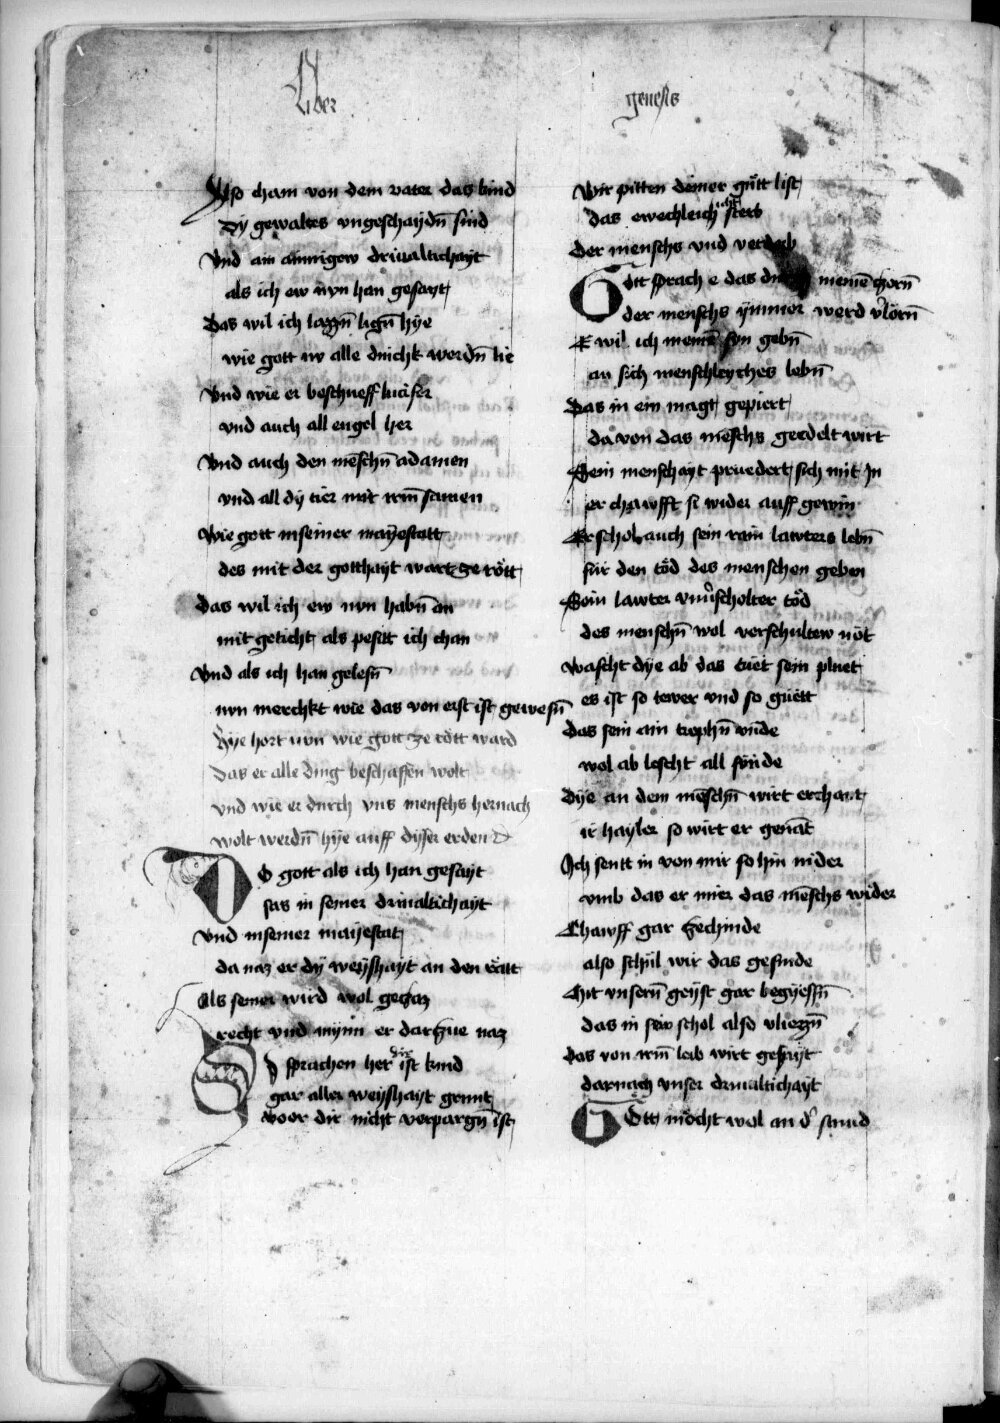 Liber genesis
Also cham von dem vater das kind
Dy gewaltes vngeschaydn̄ sind
Vnd ain ainnigew driualtichayt
als ich ew nvn han gesayt
Das wil ich lazzn̄ lign̄ hye
wie gott nv alle dinchk werdn̄ lie
Vnd wie er beschueff lucifer
vnd auch all engel her
Vnd auch den mēschn̄ adamen
vnd all dy tier mit irm̄ samen
Wie gott in seiner mayestatt
des mit der gotthayt wart ze rött
Das wil ich ew nvn habn̄ an
mit geticht als pesstt ich chan
Vnd als ich han gelesn̄
nvn merchkt wie das von erst ist gewesn̄
Hye hort nvn wie gott ze rött ward
Das er alle ding beschaffen wolt
vnd wie er durch vns menschs hernach
wolt werdn̄ hye auff dyser erden
DO gott als ich han gesayt
sas in seiner driualtichayt
Vnd in seiner maiiestat
da naz er dy weyshayt an den rätt
Als seiner wird wol gechaz
recht vnd mynn er darzue naz
SI sprachen her dir ist kund
gar aller weyshayt grunt
Voor dir nicht verpargn̄ ist
Wir pitten deiner gütt list
das ewechleich icht sterb
Der menschs vnd verderb
Gott sprach e das durch meinē zorn̄
der menschs ymmer werd v̓lorn̄
E wil ich meinē svn gebn̄
an sich menschleyches lebn̄
Das in ein magt gepiert
da von das mēschs geedelt wirt
Sein menschayt pruedert sich mit In
er chawfft si wider auff gewin
Er schol auch sein rain lawters lebn̄
für den töd des menschen geben
Sein lawter vnu̓scholter töd
des menschn̄ wol verschultew nöt
Wascht dye ab das tuet sein pluet
es ist so tewer vnd so guett
Das sein ain trophn̄ vnde
wol ab lescht all sünde
Dye an dem mēschn̄ wirt erchant
ir hayler so wirt er genāt
Ich sentt in von mir so hin nider
vmb das er mier das mēschs wider
Chawff gar ze chinde
also schül wir das gesinde
Mit vnsern̄ geyst gar begyessn̄
das in sew schol also vliezzn̄
Das von irm̄ leib wirt gefrëyt
darnach vnser driualtichayt
Gott möcht wol an d̓ stund